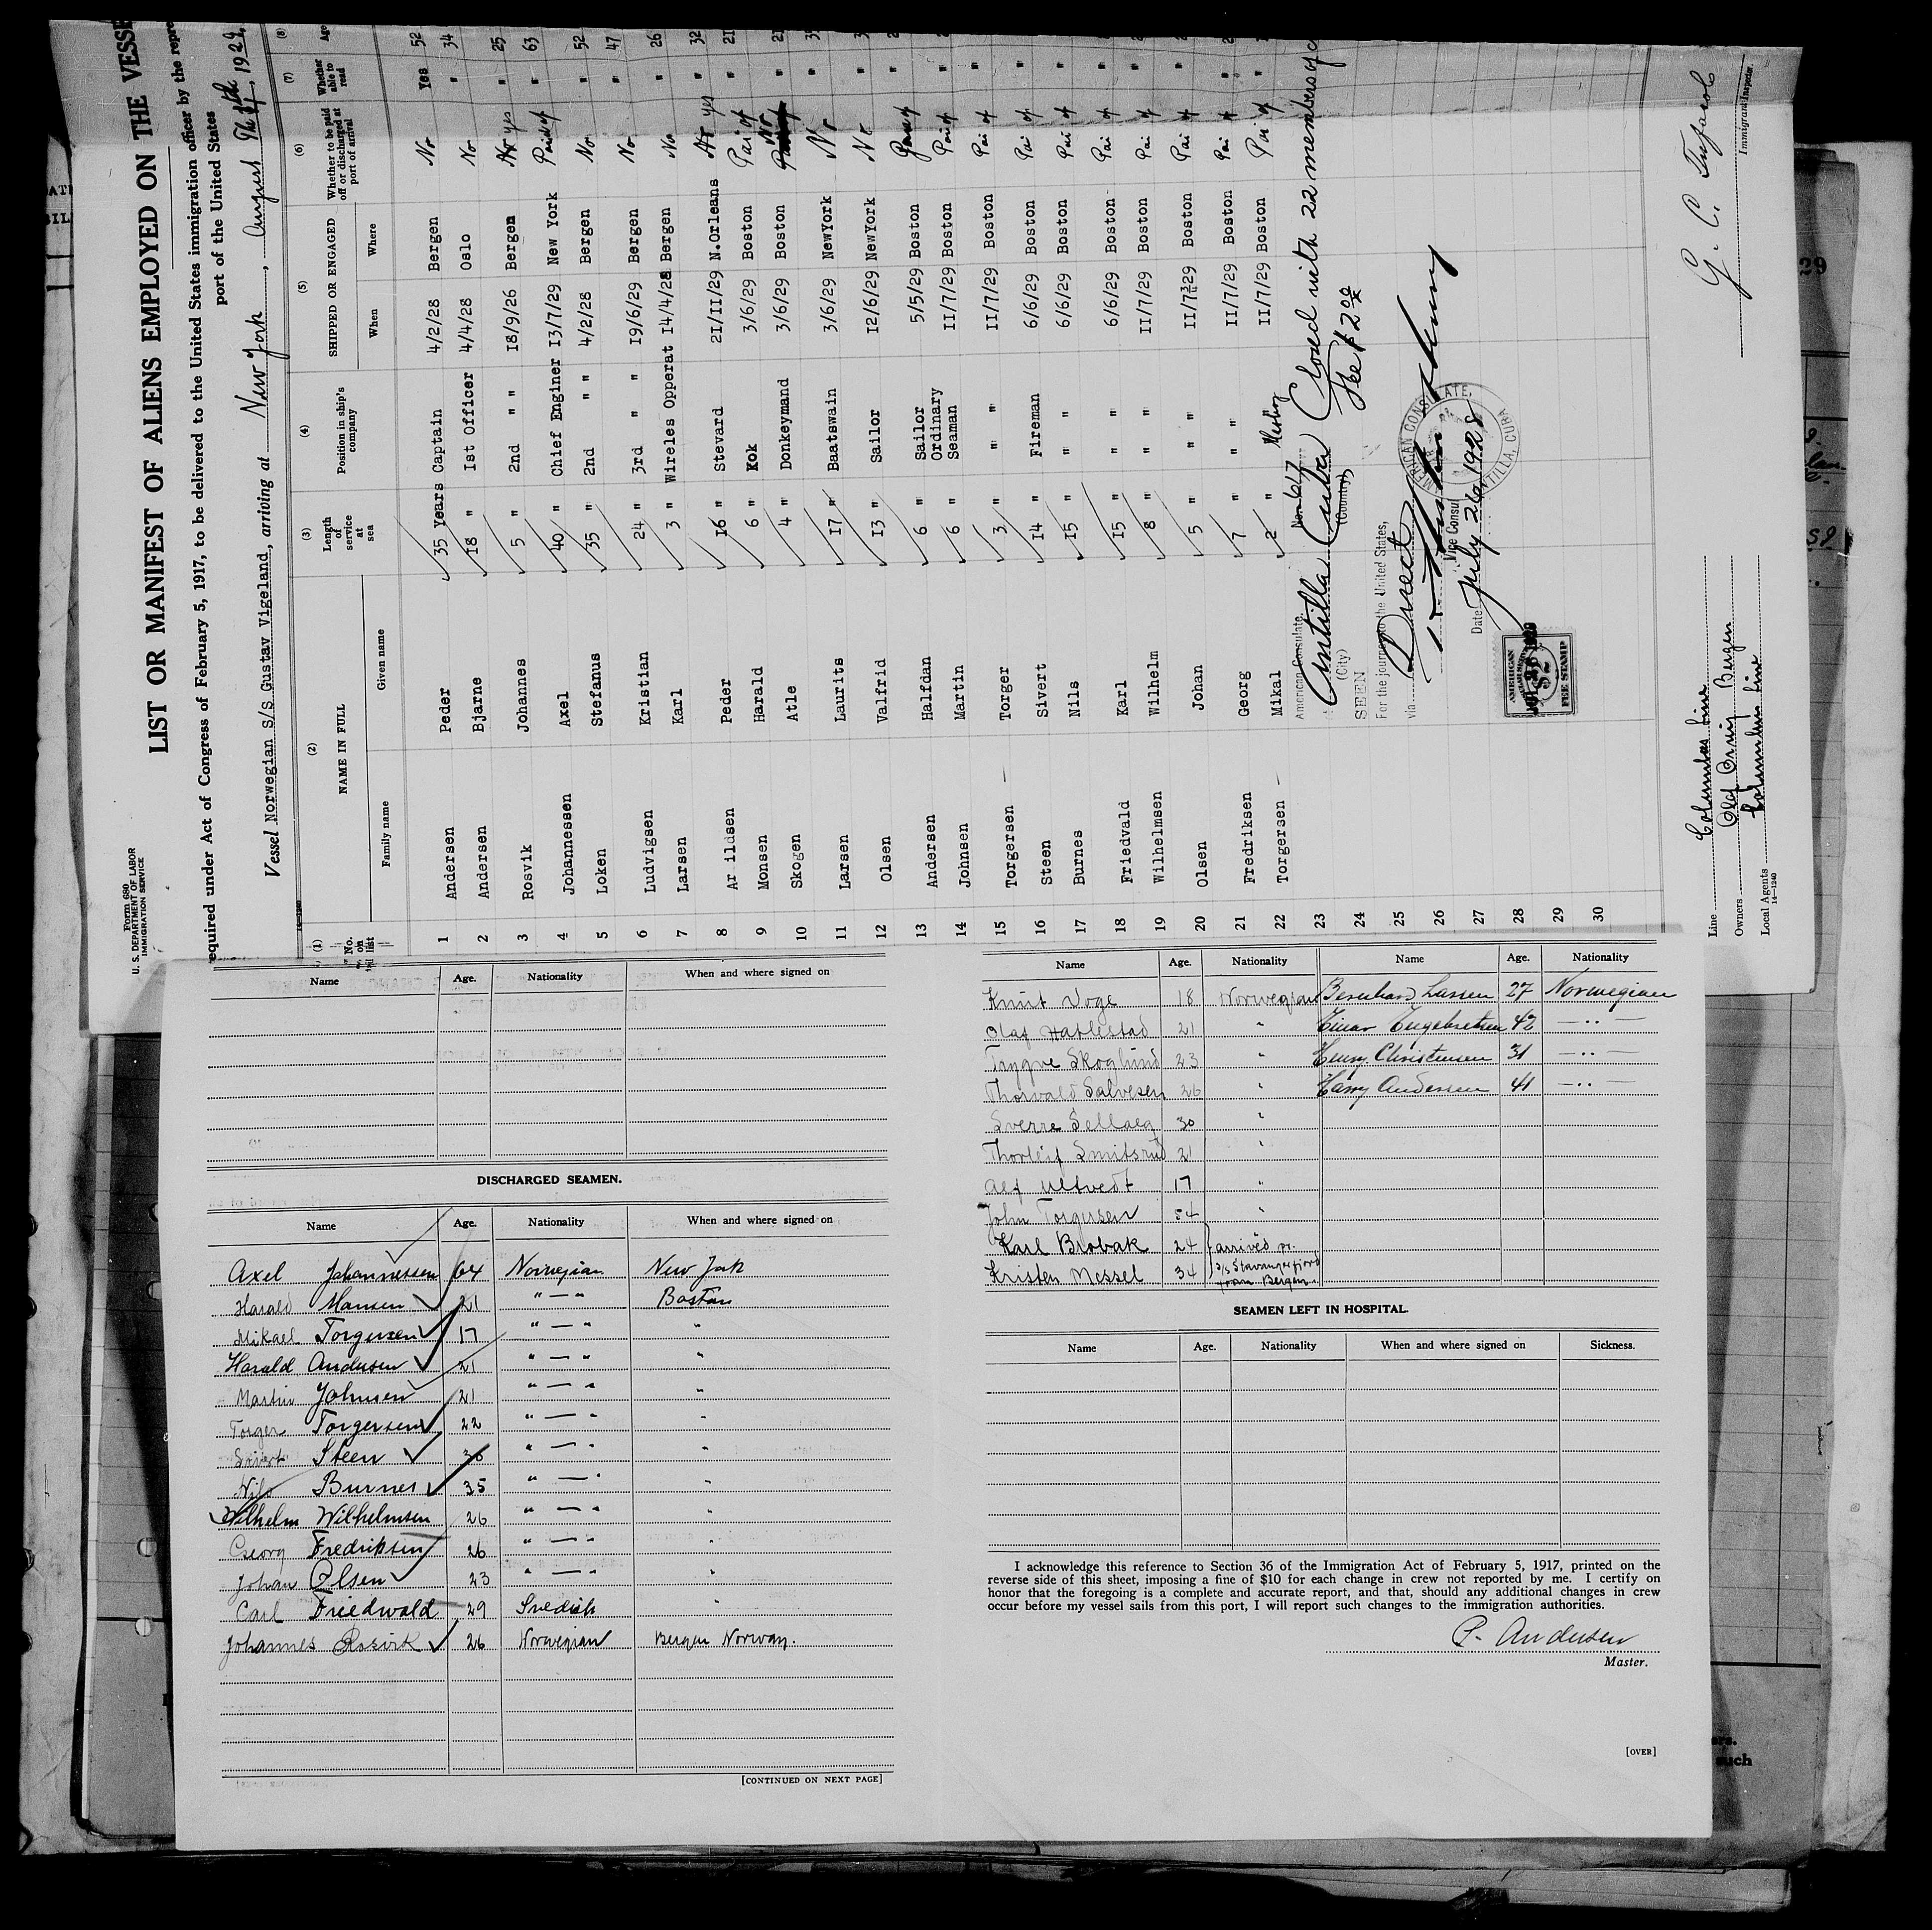 Form 680
U. S. DEPARTMENT OF LABOR
IMMIGRATION SERVICE
LIST OR MANIFEST OF ALIENS EMPLOYED ON THE VESSE
equired under Act of Congress of February 5, 1917, to be delivered to the United States immigration officer by the repre
port of the United States
Vessel Norwegian S/S Gustav Vigeland, arriving at New York, August 1929
(1) (2) (3) (4) (5) (6) (7) (8)
No. on list NAME IN FULL Length of service at sea Position in ship's company SHIPPED OR ENGAGED Whether to be paid off or discharged at port of arrival Whether able to read Age
Family name Given name When Where
1 Andersen Peder 35 Years Captain 4/2/28 Bergen No Yes 52
2 Andersen Bjarne 18 " 1st Officer 4/4/28 Oslo No " 34
3 Rosvik Johannes 5 " 2nd " " 18/9/26 Bergen No yes " 25
4 Johannessen Axel 40 " Chief Enginer 13/7/29 New York Paid of " 63
5 Loken Stefanus 35 " 2nd " " 4/2/28 Bergen No " 52
6 Ludvigsen Kristian 24 " 3rd " " 19/6/29 Bergen No " 47
7 Larsen Karl 3 " Wireles Opperat 14/4/28 Bergen No " 26
8 Ar ildsen Peder 16 " Stevard 21/11/29 N.Orleans No yes " 32
9 Monsen Harald 6 " Kok 3/6/29 Boston Pai of " 21
10 Skogen Atle 4 " Donkeymand 3/6/29 Boston No "
11 Larsen Laurits 17 " Baatswain 3/6/29 NewYork No "
12 Olsen Valfrid 13 " Sailor 12/6/29 NewYork No "
13 Andersen Halfdan 6 " Sailor 5/5/29 Boston Pai of "
14 Johnsen Martin 6 " Ordinary Seaman 11/7/29 Boston Pai of "
15 Torgersen Torger 3 " " " 11/7/29 Boston Pai of "
16 Steen Sivert 14 " Fireman 6/6/29 Boston Pai of "
17 Burnes Nils 15 " " " 6/6/29 Boston Pai of "
18 Friedvald Karl 15 " " " 6/6/29 Boston Pai of "
19 Wilhelmsen Wilhelm 8 " " " 11/7/29 Boston Pai of "
20 Olsen Johan 5 " " " 11/7/29 Boston Pai of "
21 Fredriksen Georg 7 " " " 11/7/29 Boston Pai of "
22 Torgersen Mikal 2 " Messboy 11/7/29 Boston Pai of "
23
24
25
26
27
28
29
30
American Consulate,
No. 617
Antilla Cuba
(City) (Country)
Closed with 22 members of c
Fee $2 00
SEEN
For the journey to the United States,
via Direct
Vice Consul
Date July 26, 1928
AMERICAN CONSULATE, ANTILLA, CUBA
AMERICAN
FEE STAMP
Line Columbus Line
Owners Olaf Orvig Bergen
Local Agents Columbus Line
14—1240
Immigrant Inspector.
Name Age. Nationality When and where signed on
DISCHARGED SEAMEN.
Name Age. Nationality When and where signed on
Axel Johannessen 64 Norwegian New York
Harald Monsen 21 " — " Boston
Mikael Torgersen 17 " — " "
Harald Andersen 21 " — " "
Martin Johnsen 21 " — " "
Torger Torgersen 22 " — " "
Sivert Steen 36 " — " "
Nils Burnes 35 " — " "
Wilhelm Wilhelmsen 26 " — " "
Georg Fredriksen 26 " — " "
Johan Olsen 23 " — " "
Carl Friedwald 29 Svedish "
Johannes Rosvik 26 Norwegian Bergen Norway.
[CONTINUED ON NEXT PAGE]
Name Age. Nationality Name Age. Nationality
Knut Voge 18 Norwegian Bernhard Larsen 27 Norwegian
Olaf Hablestad 21 " Einar Engebretsen 42 — " —
Trygve Skoglund 23 " Henry Christensen 31 — " —
Thorvald Salvesen 26 " Harry Andersen 41 — " —
Sverre Sellaeg 30 "
Thorleif Smitsrud 21 "
Alf Ultvedt 17 "
John Torgersen 54 "
Karl Brobak 24 arrived pr.
Kristen Messel 34 S/S Stavangerfjord from Bergen
SEAMEN LEFT IN HOSPITAL.
Name Age. Nationality When and where signed on Sickness.
I acknowledge this reference to Section 36 of the Immigration Act of February 5, 1917, printed on the
reverse side of this sheet, imposing a fine of $10 for each change in crew not reported by me. I certify on
honor that the foregoing is a complete and accurate report, and that, should any additional changes in crew
occur before my vessel sails from this port, I will report such changes to the immigration authorities.
P. Andersen
Master.
[OVER]
29
such